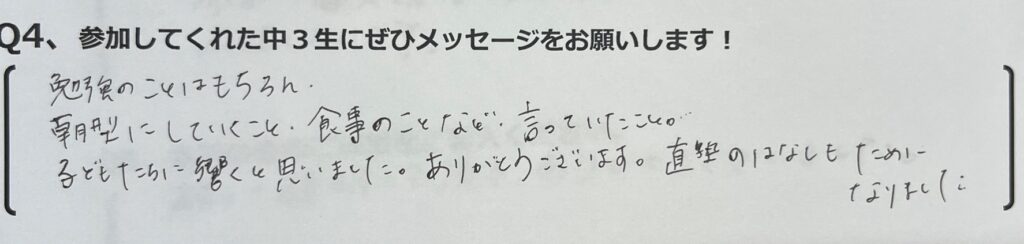 Q4、参加してくれた中3生にぜひメッセージをお願いします！
勉強のことはもちろん、
朝型にしていくこと、食事のことなど、言っていたこと。
子どもたちに響くと思いました。ありがとうございます。直塾のはなしもために
なりました